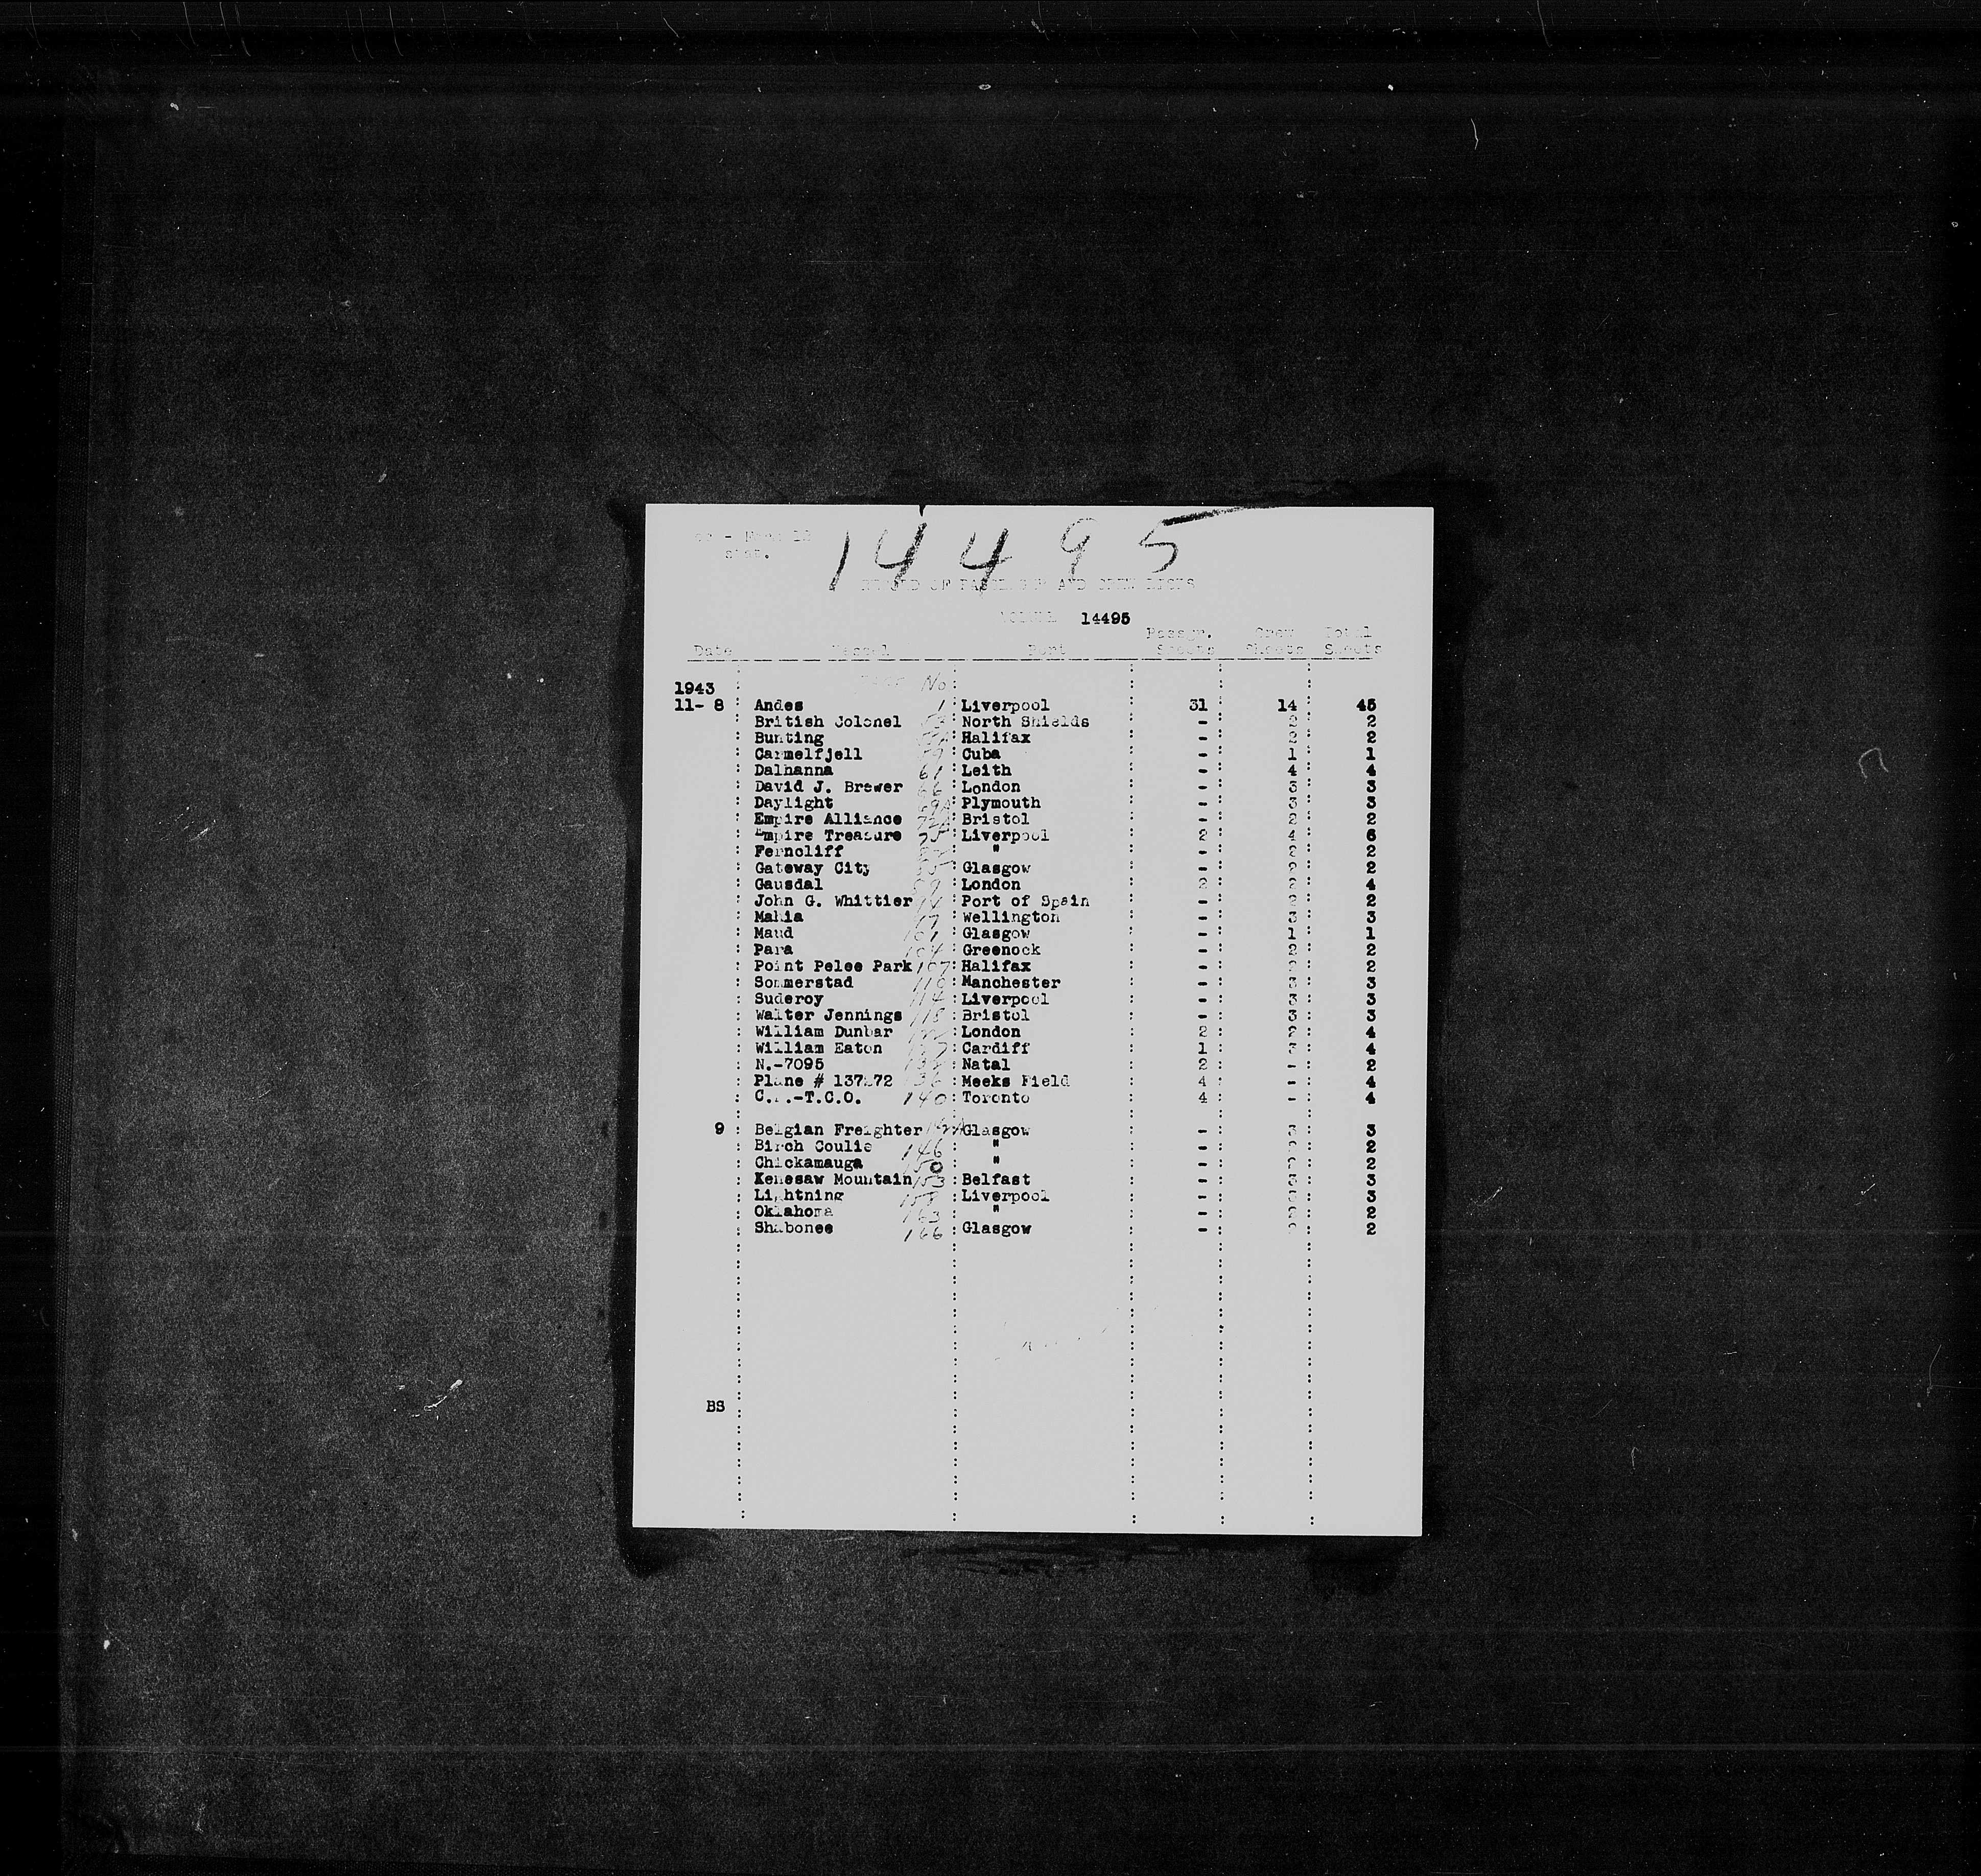 14495
RECORD OF PASSENGER AND CREW LISTS
VOLUME 14495
Passgr. Crew Total
Date Vessel Port Sheets Sheets Sheets
No
1943
11- 8 Andes 1 Liverpool 31 14 45
British Colonel North Shields - 2 2
Bunting Halifax - 2 2
Carmelfjell Cuba - 1 1
Dalhanna 61 Leith - 4 4
David J. Brewer 66 London - 3 3
Daylight Plymouth - 3 3
Empire Alliance Bristol - 2 2
Empire Treasure Liverpool 2 4 6
Ferncliff " - 2 2
Gateway City Glasgow - 2 2
Gausdal London 2 2 4
John G. Whittier Port of Spain - 2 2
Mahia Wellington - 3 3
Maud 101 Glasgow - 1 1
Para 104 Greenock - 2 2
Point Pelee Park 107 Halifax - 2 2
Sommerstad 110 Manchester - 3 3
Suderoy 114 Liverpool - 3 3
Walter Jennings 118 Bristol - 3 3
William Dunbar London 2 2 4
William Eaton Cardiff 1 3 4
N.-7095 Natal 2 - 2
Plane # Meeks Field 4 - 4
-T.C.O. 140 Toronto 4 - 4
9 Belgian Freighter Glasgow - 3 3
Birch Coulie 146 " - 2 2
Chickamauga 150 " - 2 2
Kenesaw Mountain 153 Belfast - 3 3
Lightning Liverpool - 3 3
Oklahoma 163 " - 2 2
Shabonee 166 Glasgow - 2 2
BS